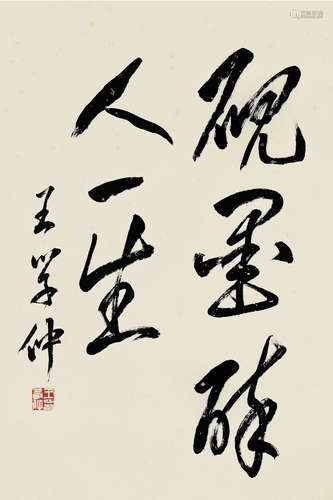 砚墨醉
人一生
王学仲